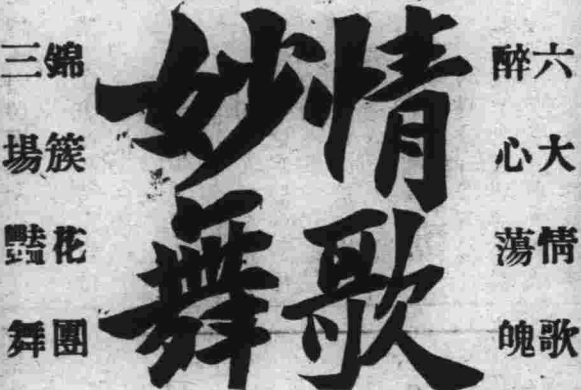 六大情歌
醉心蕩魄
情歌
妙舞
錦簇花團
三場豔舞